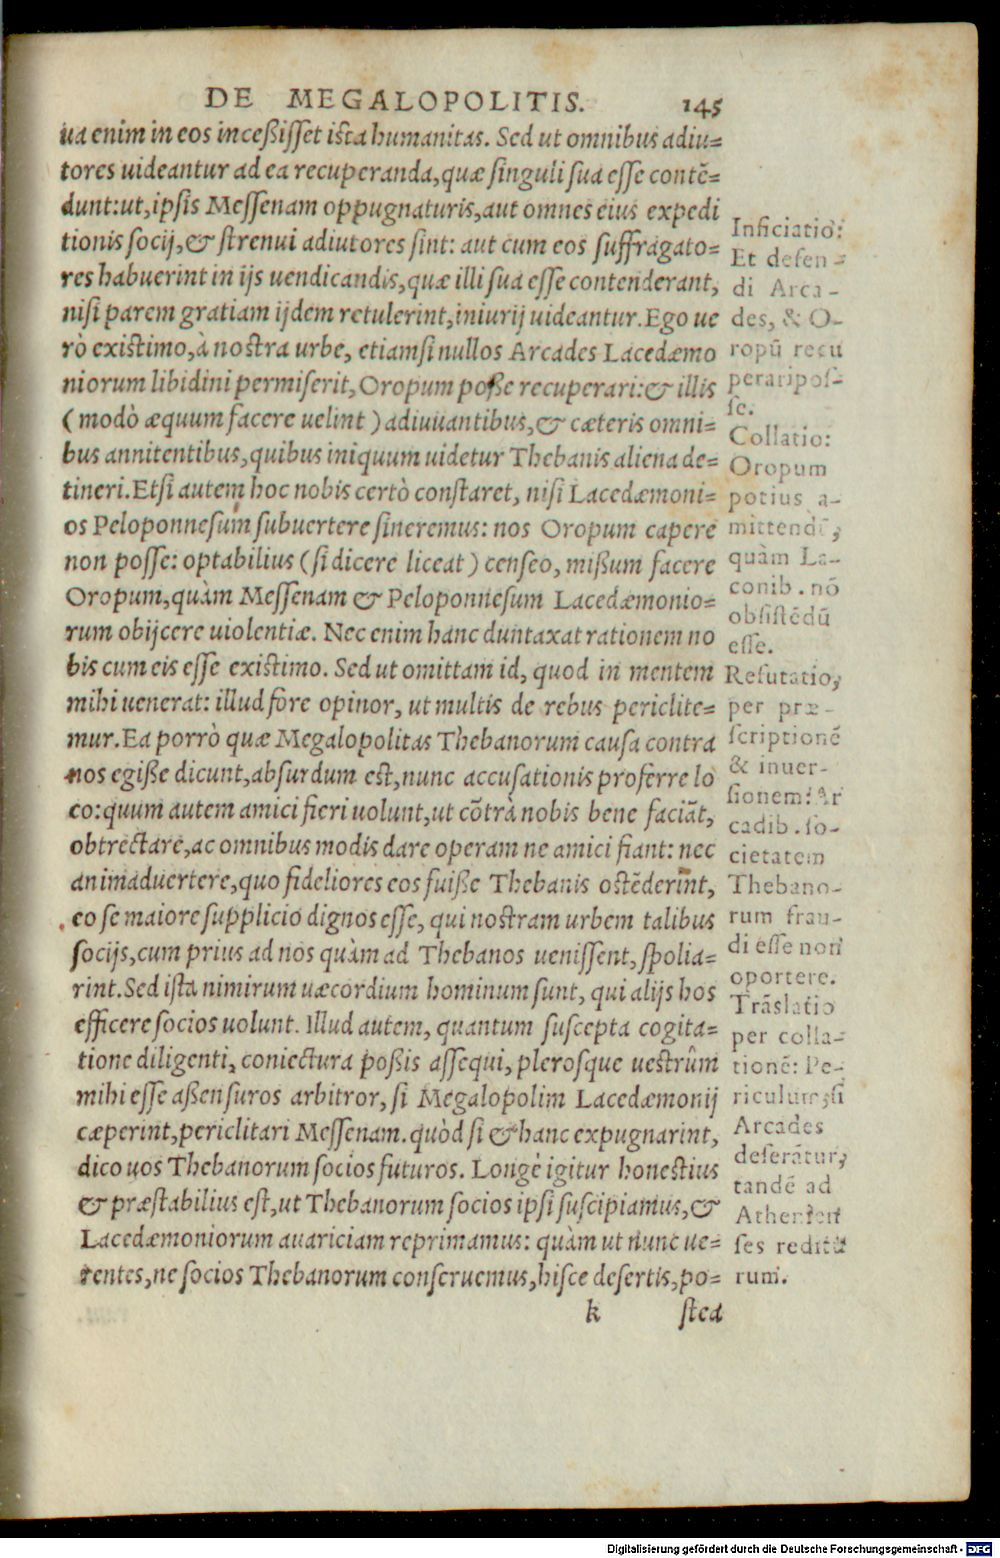 DE MEGALOPOLITIS. 145
ua enim in eos inceßisset ista humanitas. Sed ut omnibus adiu=
tores uideantur ad ea recuperanda, quæ singuli sua esse contẽ=
dunt: ut, ipsis Messenam oppugnaturis, aut omnes eius expedi
tionis socij, & strenui adiutores sint: aut cum eos suffragato=
res habuerint in ijs uendicandis, quæ illi sua esse contenderant,
nisi parem gratiam ijdem retulerint, iniurij uideantur. Ego ue
rò existimo, à nostra urbe, etiamsi nullos Arcades Lacedæmo
niorum libidini permiserit, Oropum poße recuperari: & illis
(modò æquum facere uelint) adiuuantibus, & cæteris omni=
bus annitentibus, quibus iniquum uidetur Thebanis aliena de=
tineri. Etsi autem hoc nobis certò constaret, nisi Lacedæmoni=
os Peloponnesum subuertere sineremus: nos Oropum capere
non posse: optabilius (si dicere liceat) censeo, mißum facere
Oropum, quàm Messenam & Peloponnesum Lacedæmonio=
rum obijcere uiolentiæ. Nec enim hanc duntaxat rationem no
bis cum eis esse existimo. Sed ut omittam id, quod in mentem
mihi uenerat: illud fore opinor, ut multis de rebus periclite=
mur. Ea porrò quæ Megalopolitas Thebanorum causa contra
nos egiße dicunt, absurdum est, nunc accusationis proferre lo
co: quum autem amici fieri uolunt, ut cõtrà nobis bene faciãt,
obtrectare, ac omnibus modis dare operam ne amici fiant: nec
animaduertere, quo fideliores eos fuiße Thebanis ostẽderint,
eo se maiore supplicio dignos esse, qui nostram urbem talibus
socijs, cum prius ad nos quàm ad Thebanos uenissent, spolia=
rint. Sed ista nimirum uæcordium hominum sunt, qui alijs hos
efficere socios uolunt. Illud autem, quantum suscepta cogita=
tione diligenti, coniectura poßis assequi, plerosque uestrûm
mihi esse aßensuros arbitror, si Megalopolim Lacedæmonij
cæperint, periclitari Messenam. quòd si & hanc expugnarint,
dico uos Thebanorum socios futuros. Longè igitur honestius
& præstabilius est, ut Thebanorum socios ipsi suscipiamus, &
Lacedæmoniorum auariciam reprimamus: quàm ut nunc ue=
rentes, ne socios Thebanorum conseruemus, hisce desertis, po=
k sted
Inficiatio:
Et defen-
di Arca-
des, & O-
ropũ recu
perari pos-
se.
Collatio:
Oropum
potius a-
mittendũ,
quàm La-
conib. nõ
obsistẽdũ
esse.
Refutatio,
per præ-
scriptionẽ
& inuer-
sionem: Ar
cadib. so-
cietatem
Thebano-
rum frau-
di esse non
oportere.
Trãslatio
per colla-
tionẽ: Pe-
riculum, si
Arcades
deserãtur,
tandẽ ad
Athenien
ses reditu
rum.
Digitalisierung gefördert durch die Deutsche Forschungsgemeinschaft - DFG